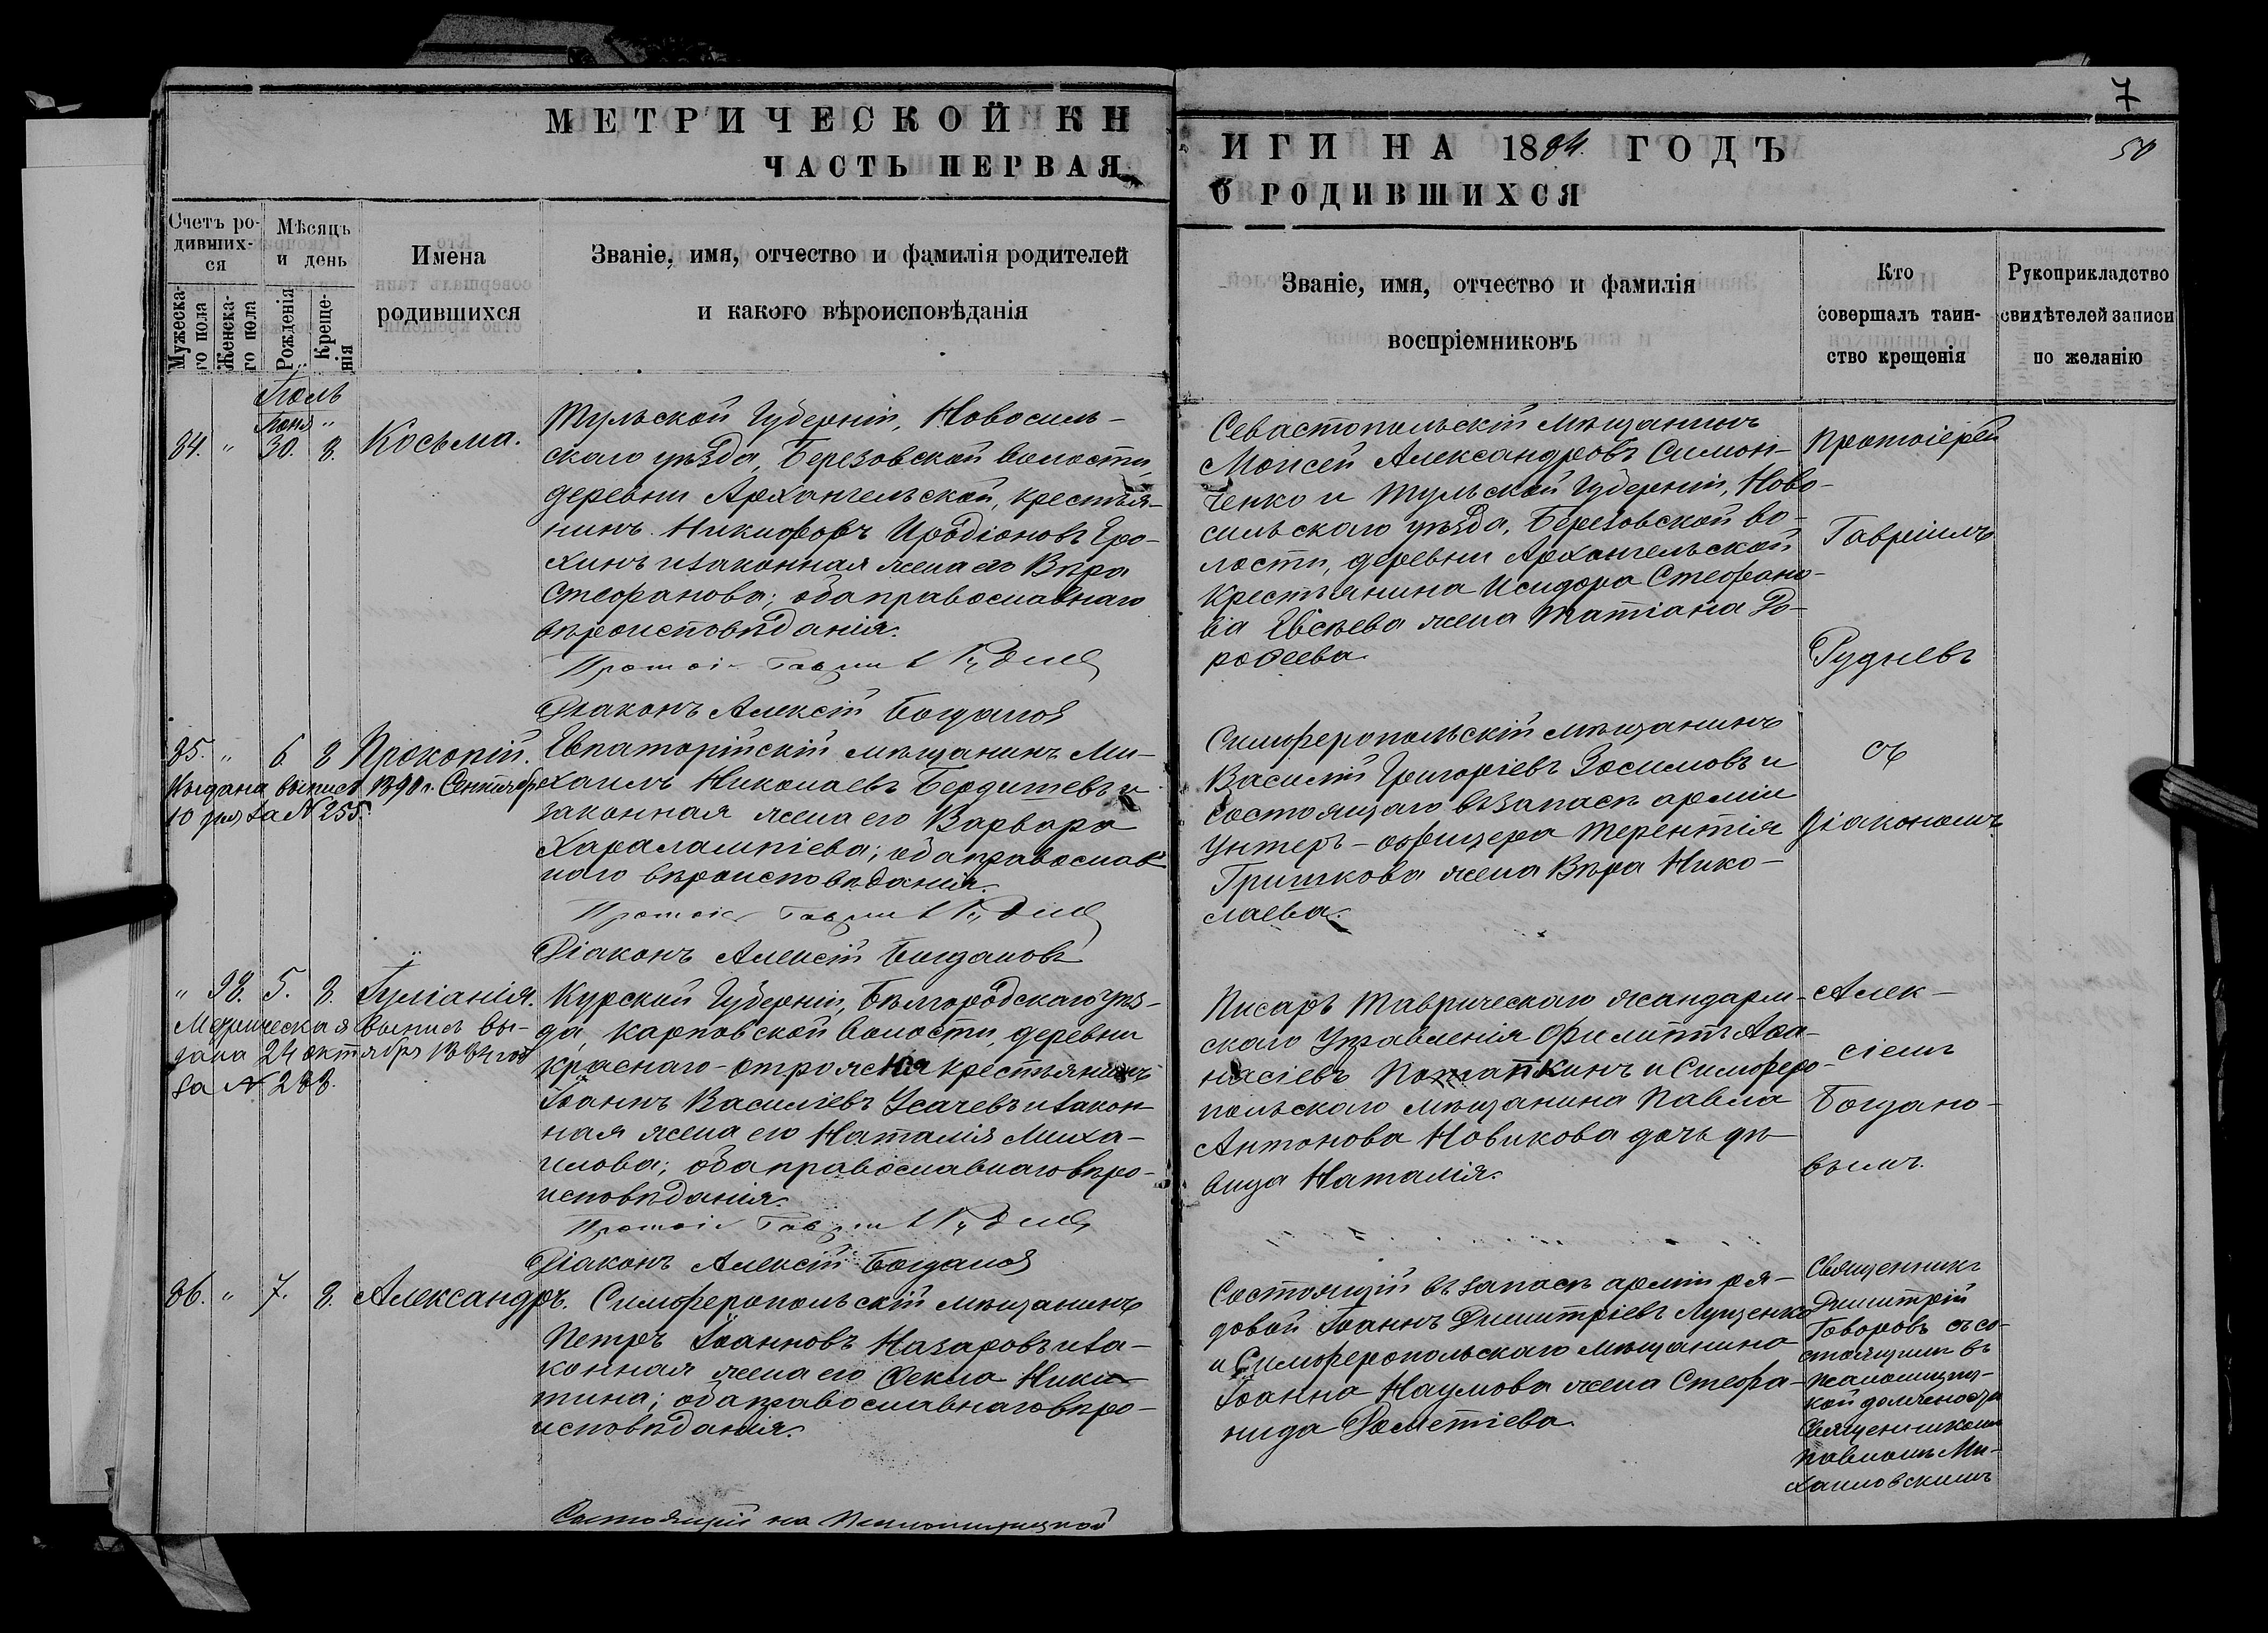 7
50
МЕТРИЧЕСКОЙ КН
ЧАСТЬ ПЕРВАЯ
ИГИ НА 1884. ГОДЪ
О РОДИВШИХСЯ
Счетъ ро-
дивших-
ся
Мужеска-
го пола
Женска-
го пола
Мѣсяцъ
и день
Рожденія
Креще-
нія
Имена
родившихся
Званіе, имя, отчество и фамилія родителей
и какого вѣроисповѣданія
Званіе, имя, отчество и фамилія
воспріемниковъ
Кто
совершалъ таин-
ство крещенія
Рукоприкладство
свидѣтелей записи
по желанію
Іюль
Іюня "
84. " 30. 8. Косьма.
Тульской Губерніи, Новосиль-
скаго уѣзда, Березовской волости,
деревни Архангельской, крестья-
нинъ Никифоръ Иродіоновъ Еро-
хинъ и законная жена его Вѣра
Стефанова; оба православнаго
вѣроисповѣданія.
Протоі Гавріи Рудне
Діаконъ Алексій Богданов
Севастопольскій мѣщанинъ
Моисей Александровъ Симон-
ченко и Тульской Губерніи, Ново-
сильскаго уѣзда, Березовской во-
лости, деревни Архангельской
крестьянина Исидора Стефано-
ва Евсѣева жена Татіана До-
роѳеева.
Протоіерей
Гавріилъ
Рудневъ
85. " 6 8 Прокопій.
Выдана выпись 1890 г. Сентября
10 дня за № 255.
Евпаторійскій мѣщанинъ Ми-
хаилъ Николаевъ Бердишевъ и
законная жена его Варвара
Харалампіева; оба православ
наго вѣроисповѣданія.
Протоі Гавріи Рудне
Діаконъ Алексій Богдановъ
Симферопольскій мѣщанинъ
Василій Григоріевъ Зосимовъ и
состоящаго въ запасѣ арміи
унтеръ-офицера Терентія
Гришкова жена Вѣра Нико-
лаева.
съ
Діакономъ
" 98. 5. 8. Іуліанія.
Метрическая выпись вы-
дана 24 октября 1884 год
за № 288.
Курской Губерніи, Бѣлгородскаго уѣз-
да, Карповской волости, деревни
Краснаго-Отрожка крестьянинъ
Іоаннъ Василіевъ Усачевъ и закон-
ная жена его Наталія Миха-
илова; оба православнаго вѣро-
исповѣданія.
Протоі Гавріи Рудне
Діаконъ Алексій Богданов
Писарь Таврическаго жандарм-
скаго Управленія Филиппъ Аѳа-
насіевъ Потапкинъ и Симферо-
польскаго мѣщанина Павла
Антонова Новикова дочь дѣ-
вица Наталія.
Алек-
сіемъ
Богдано-
вымъ.
86. " 7. 8. Александръ.
Симферопольскій мѣщанинъ
Петръ Іоанновъ Назаровъ и за-
конная жена его Ѳекла Ники-
тина; оба православнаго вѣро-
исповѣданія.
Состоящій на Псаломщицкой
Состоящій въ запасѣ арміи ря-
довой Іоаннъ Димитріевъ Луценко
и Симферопольскаго мѣщанина
Іоанна Наумова жена Стефа-
нида Дометіева.
Священникъ
Димитрій
Говоровъ съ со-
стоящимъ въ
псаломщиц-
кой должности
Священникомъ
Павломъ Ми-
хаиловскимъ